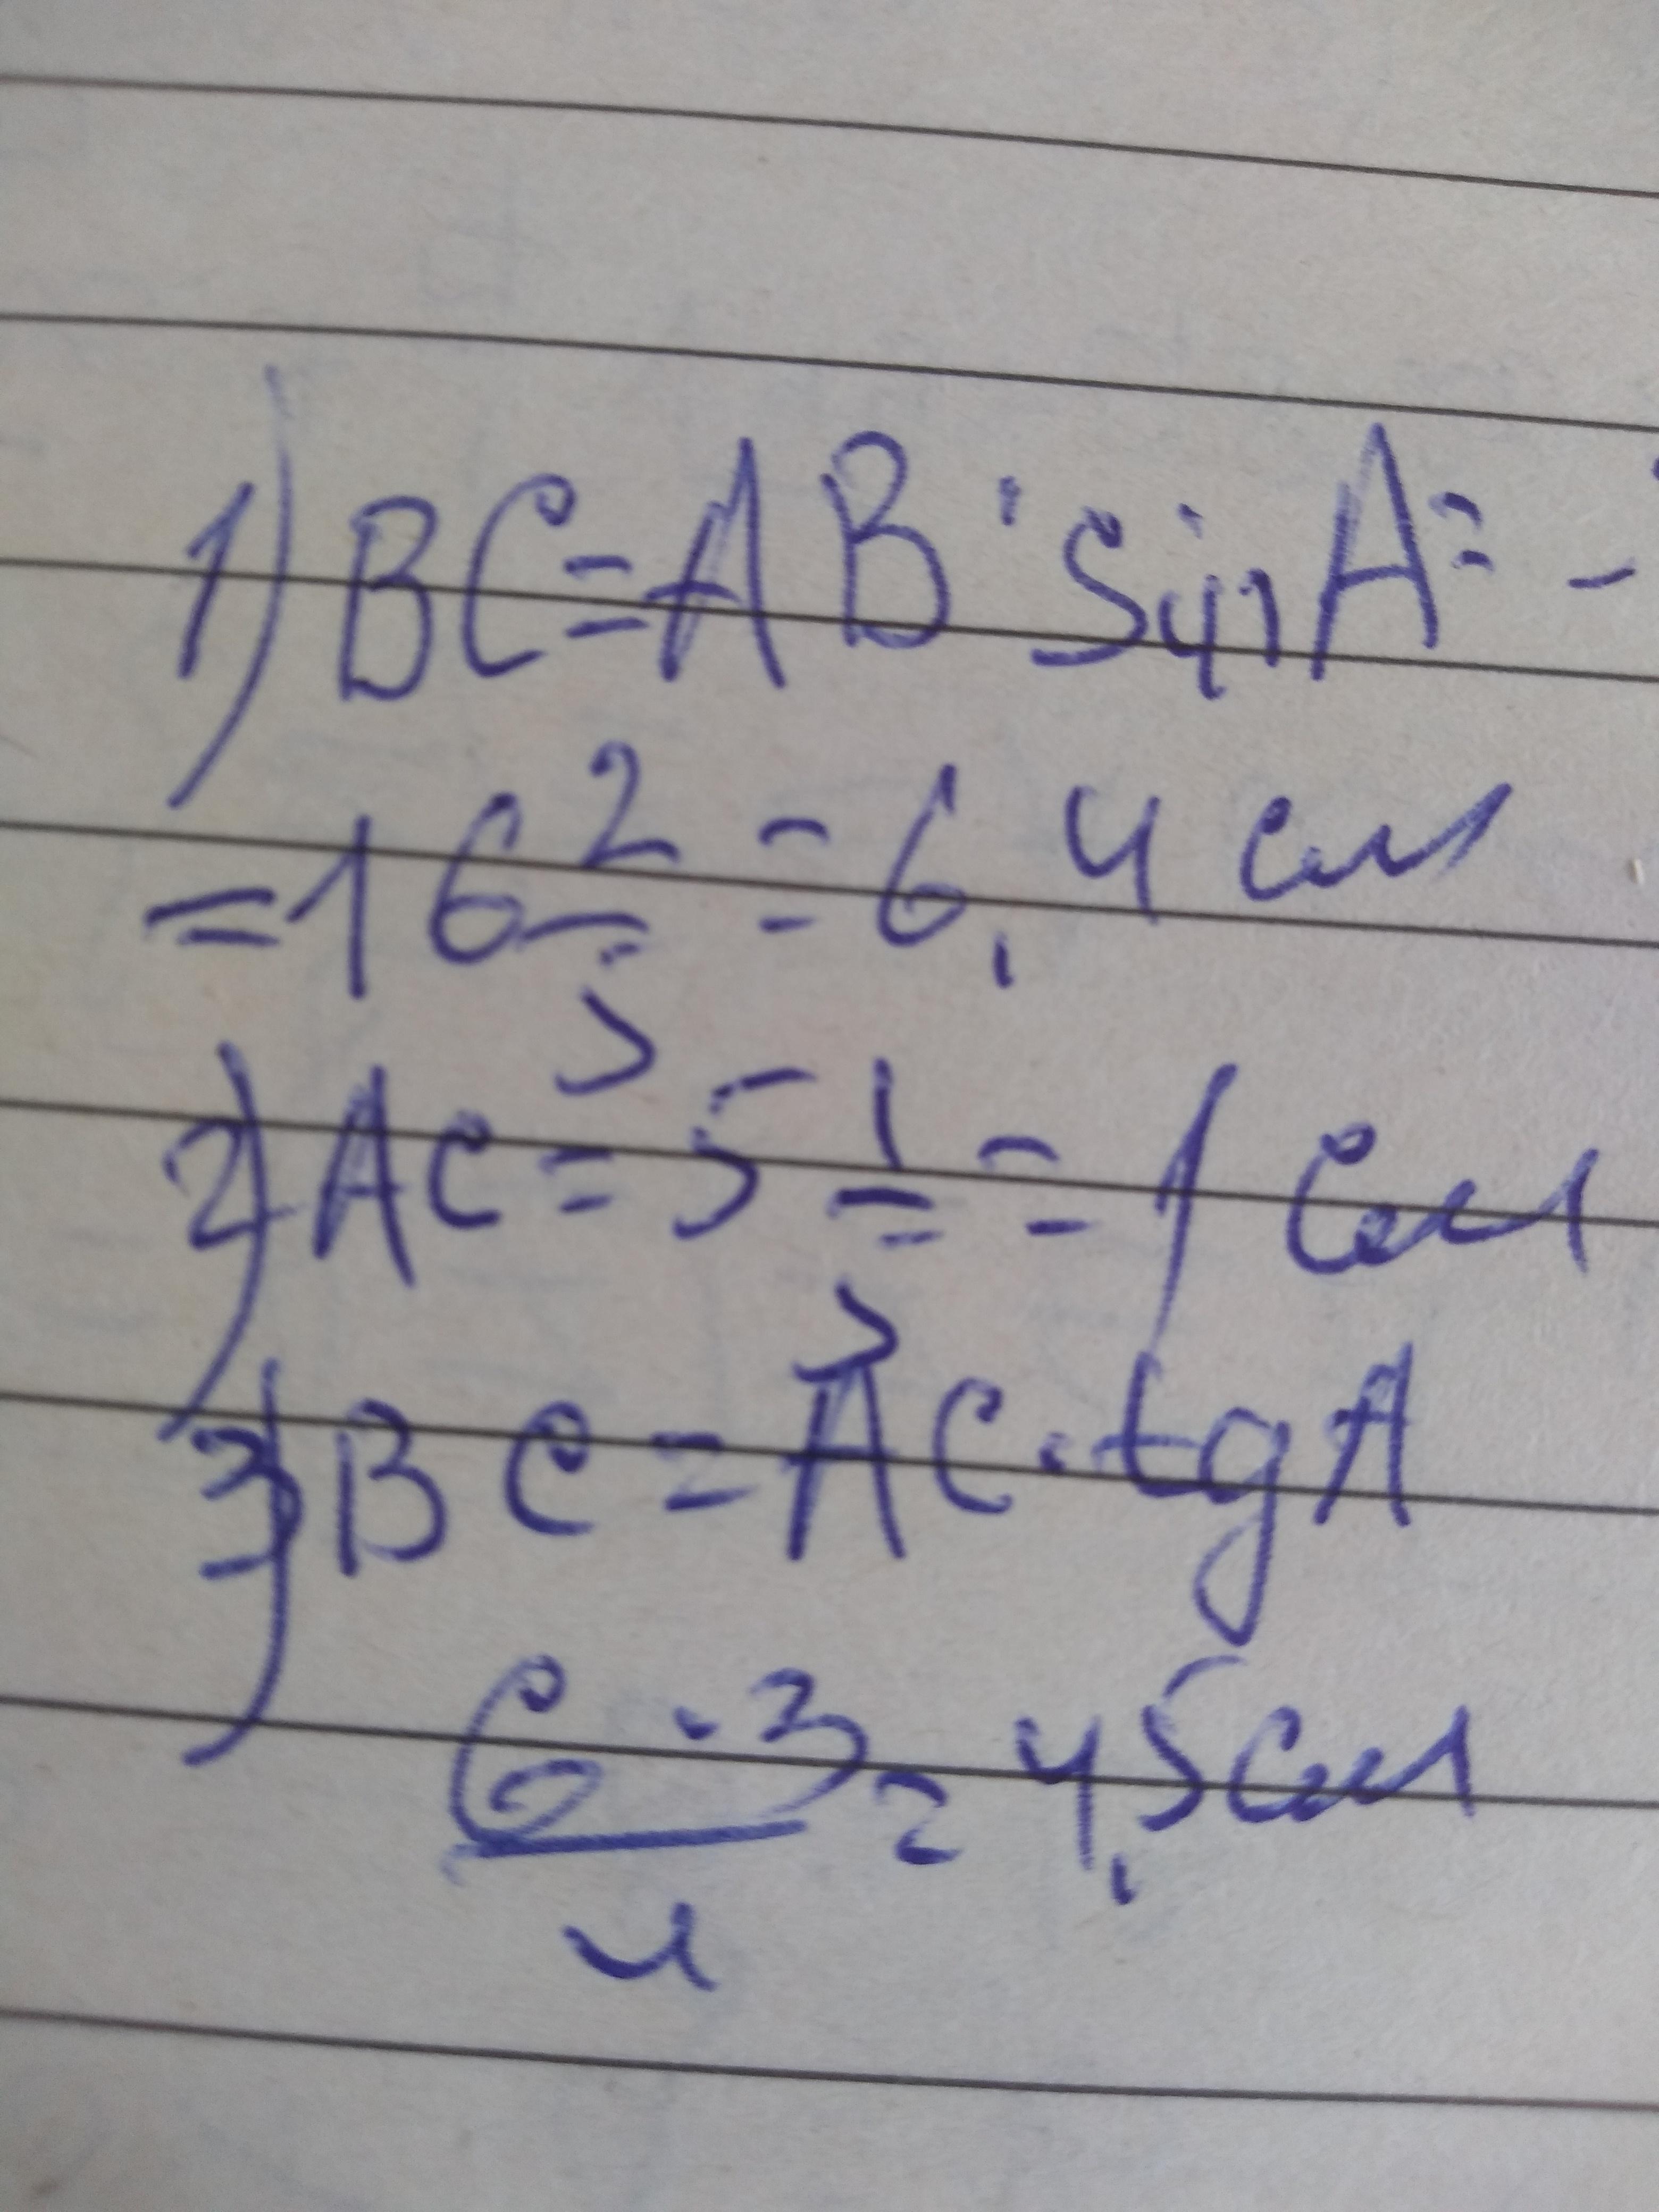 1) BC=AB·sinA= -
=16 2/5 = 6,4 см
2) AC = 5 1/5 = 1 см
3) BC = AC·tgA
6·3/4 = 4,5 см